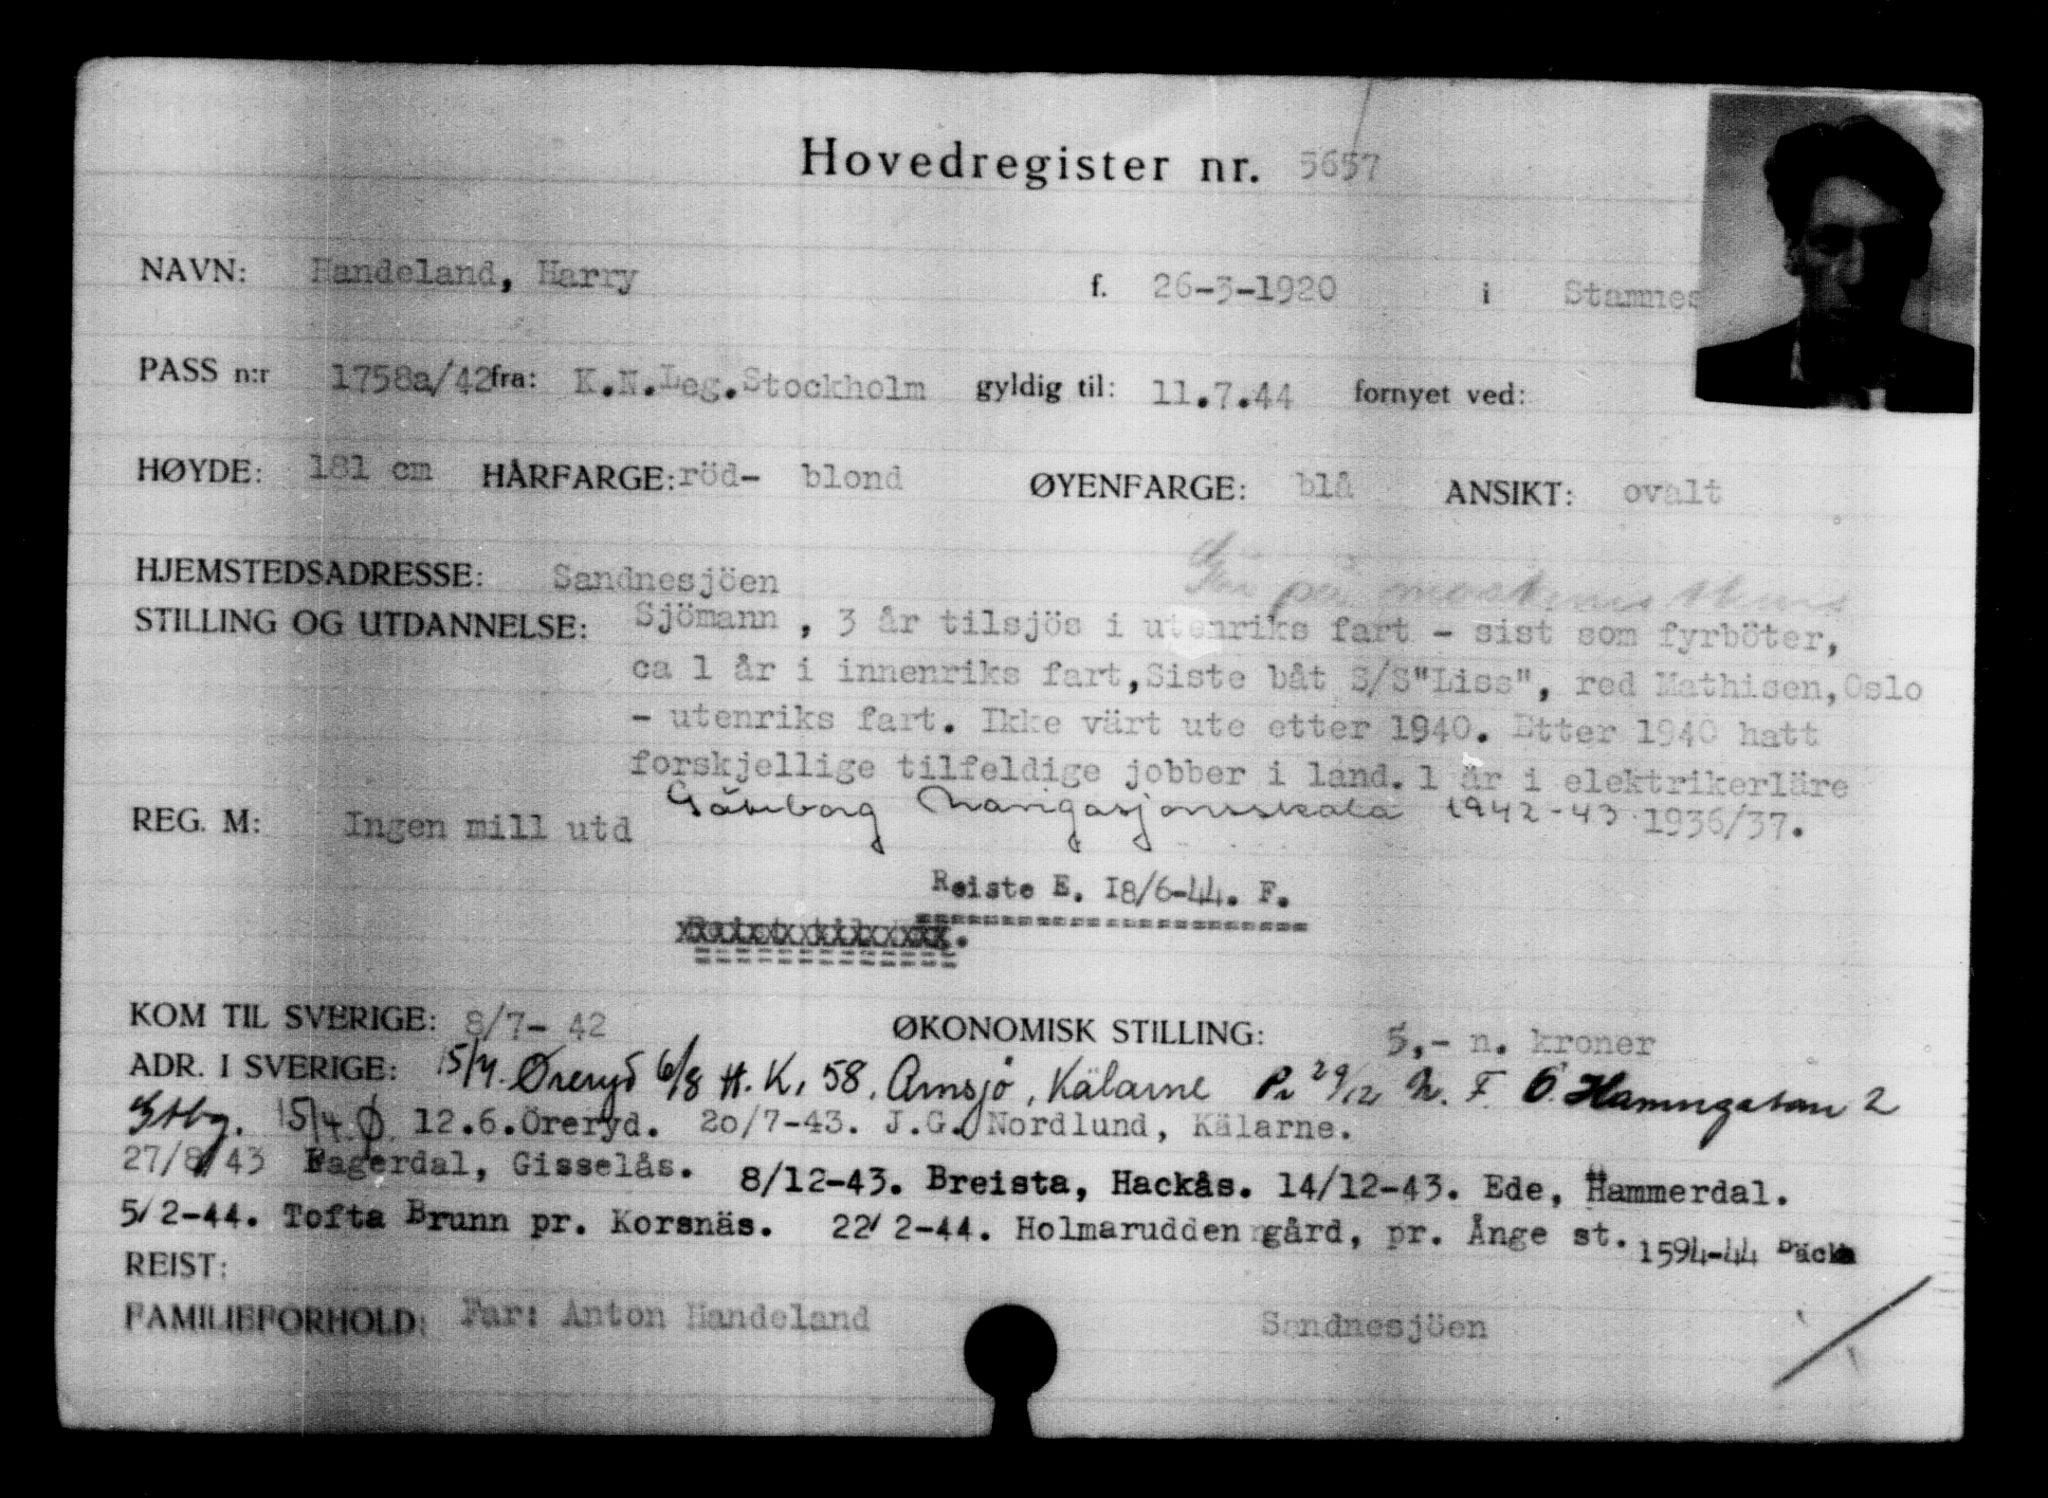 Hovedregister nr. 5657
NAVN: Handeland, Harry f. 26-3-1920 i Stamnes
PASS n:r 1758a/42 fra: K.N.Leg.Stockholm gyldig til: 11.7.44 fornyet ved:
HØYDE: 181 cm HÅRFARGE: röd- blond ØYENFARGE: blå ANSIKT: ovalt
på
HJEMSTEDSADRESSE: Sandnesjöen
STILLING OG UTDANNELSE: Sjömann , 3 år tilsjös i utenriks fart - sist som fyrböter,
ca 1 år i innenriks fart,Siste båt S/S"Liss", red Mathisen,Oslo
- utenriks fart. Ikke värt ute etter 1940. Etter 1940 hatt
forskjellige tilfeldige jobber i land. 1 år i elektrikerläre
Göteborg Navigasjonsskola 1942-43 1936/37.
REG. M: Ingen mill utd
Reiste E. 18/6-44. F.
KOM TIL SVERIGE: 8/7- 42 ØKONOMISK STILLING: 5,- n. kroner
ADR. I SVERIGE: 15/7. Øreryd 6/8 H.K. 58, Ansjö, Kälarne 29/12 N. F. Ö. Hamngatan 2
Gtbg. 15/4 12.6.Öreryd. 20/7-43. J.G. Nordlund, Kälarne.
27/8/43 Fagerdal, Gisselås. 8/12-43. Breista, Hackås. 14/12-43. Ede, Hammerdal.
5/2-44. Tofta Brunn pr. Korsnäs. 22/2-44. Holmarudden gård, pr. Ånge st. 1594-44 Däcka
REIST:
FAMILIEFORHOLD: Far: Anton Handeland Sandnesjöen